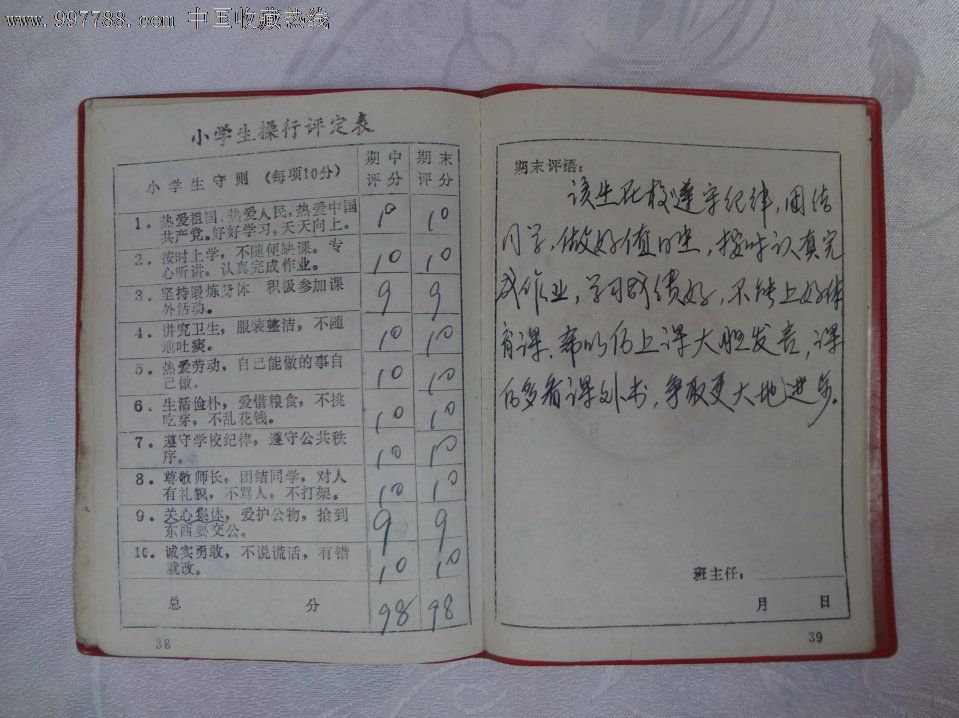 www.997788.com 中国收藏热线
小学生操行评定表
小学生守则（每项10分） 期中评分 期末评分
1. 热爱祖国、热爱人民，热爱中国
共产党。好好学习，天天向上。 10 10
2. 按时上学，不随便缺课。专
心听讲，认真完成作业。 10 10
3. 坚持锻炼身体，积极参加课
外活动。 9 9
4. 讲究卫生，服装整洁，不随
地吐痰。 10 10
5. 热爱劳动，自己能做的事自
己做。 10 10
6. 生活俭朴，爱惜粮食，不挑
吃穿，不乱花钱。 10 10
7. 遵守学校纪律，遵守公共秩
序。 10 10
8. 尊敬师长，团结同学，对人
有礼貌，不骂人，不打架。 10 10
9. 关心集体，爱护公物，拾到
东西要交公。 9 9
10. 诚实勇敢，不说谎话，有错
就改。 10 10
总分 98 98
38
期末评语：
该生在校遵守纪律，团结
同学，做好值日生，按时认真完
成作业，学习成绩好，不能上好体
育课，希以后上课大胆发言，课
后多看课外书，争取更大地进步。
班主任：
月 日
39